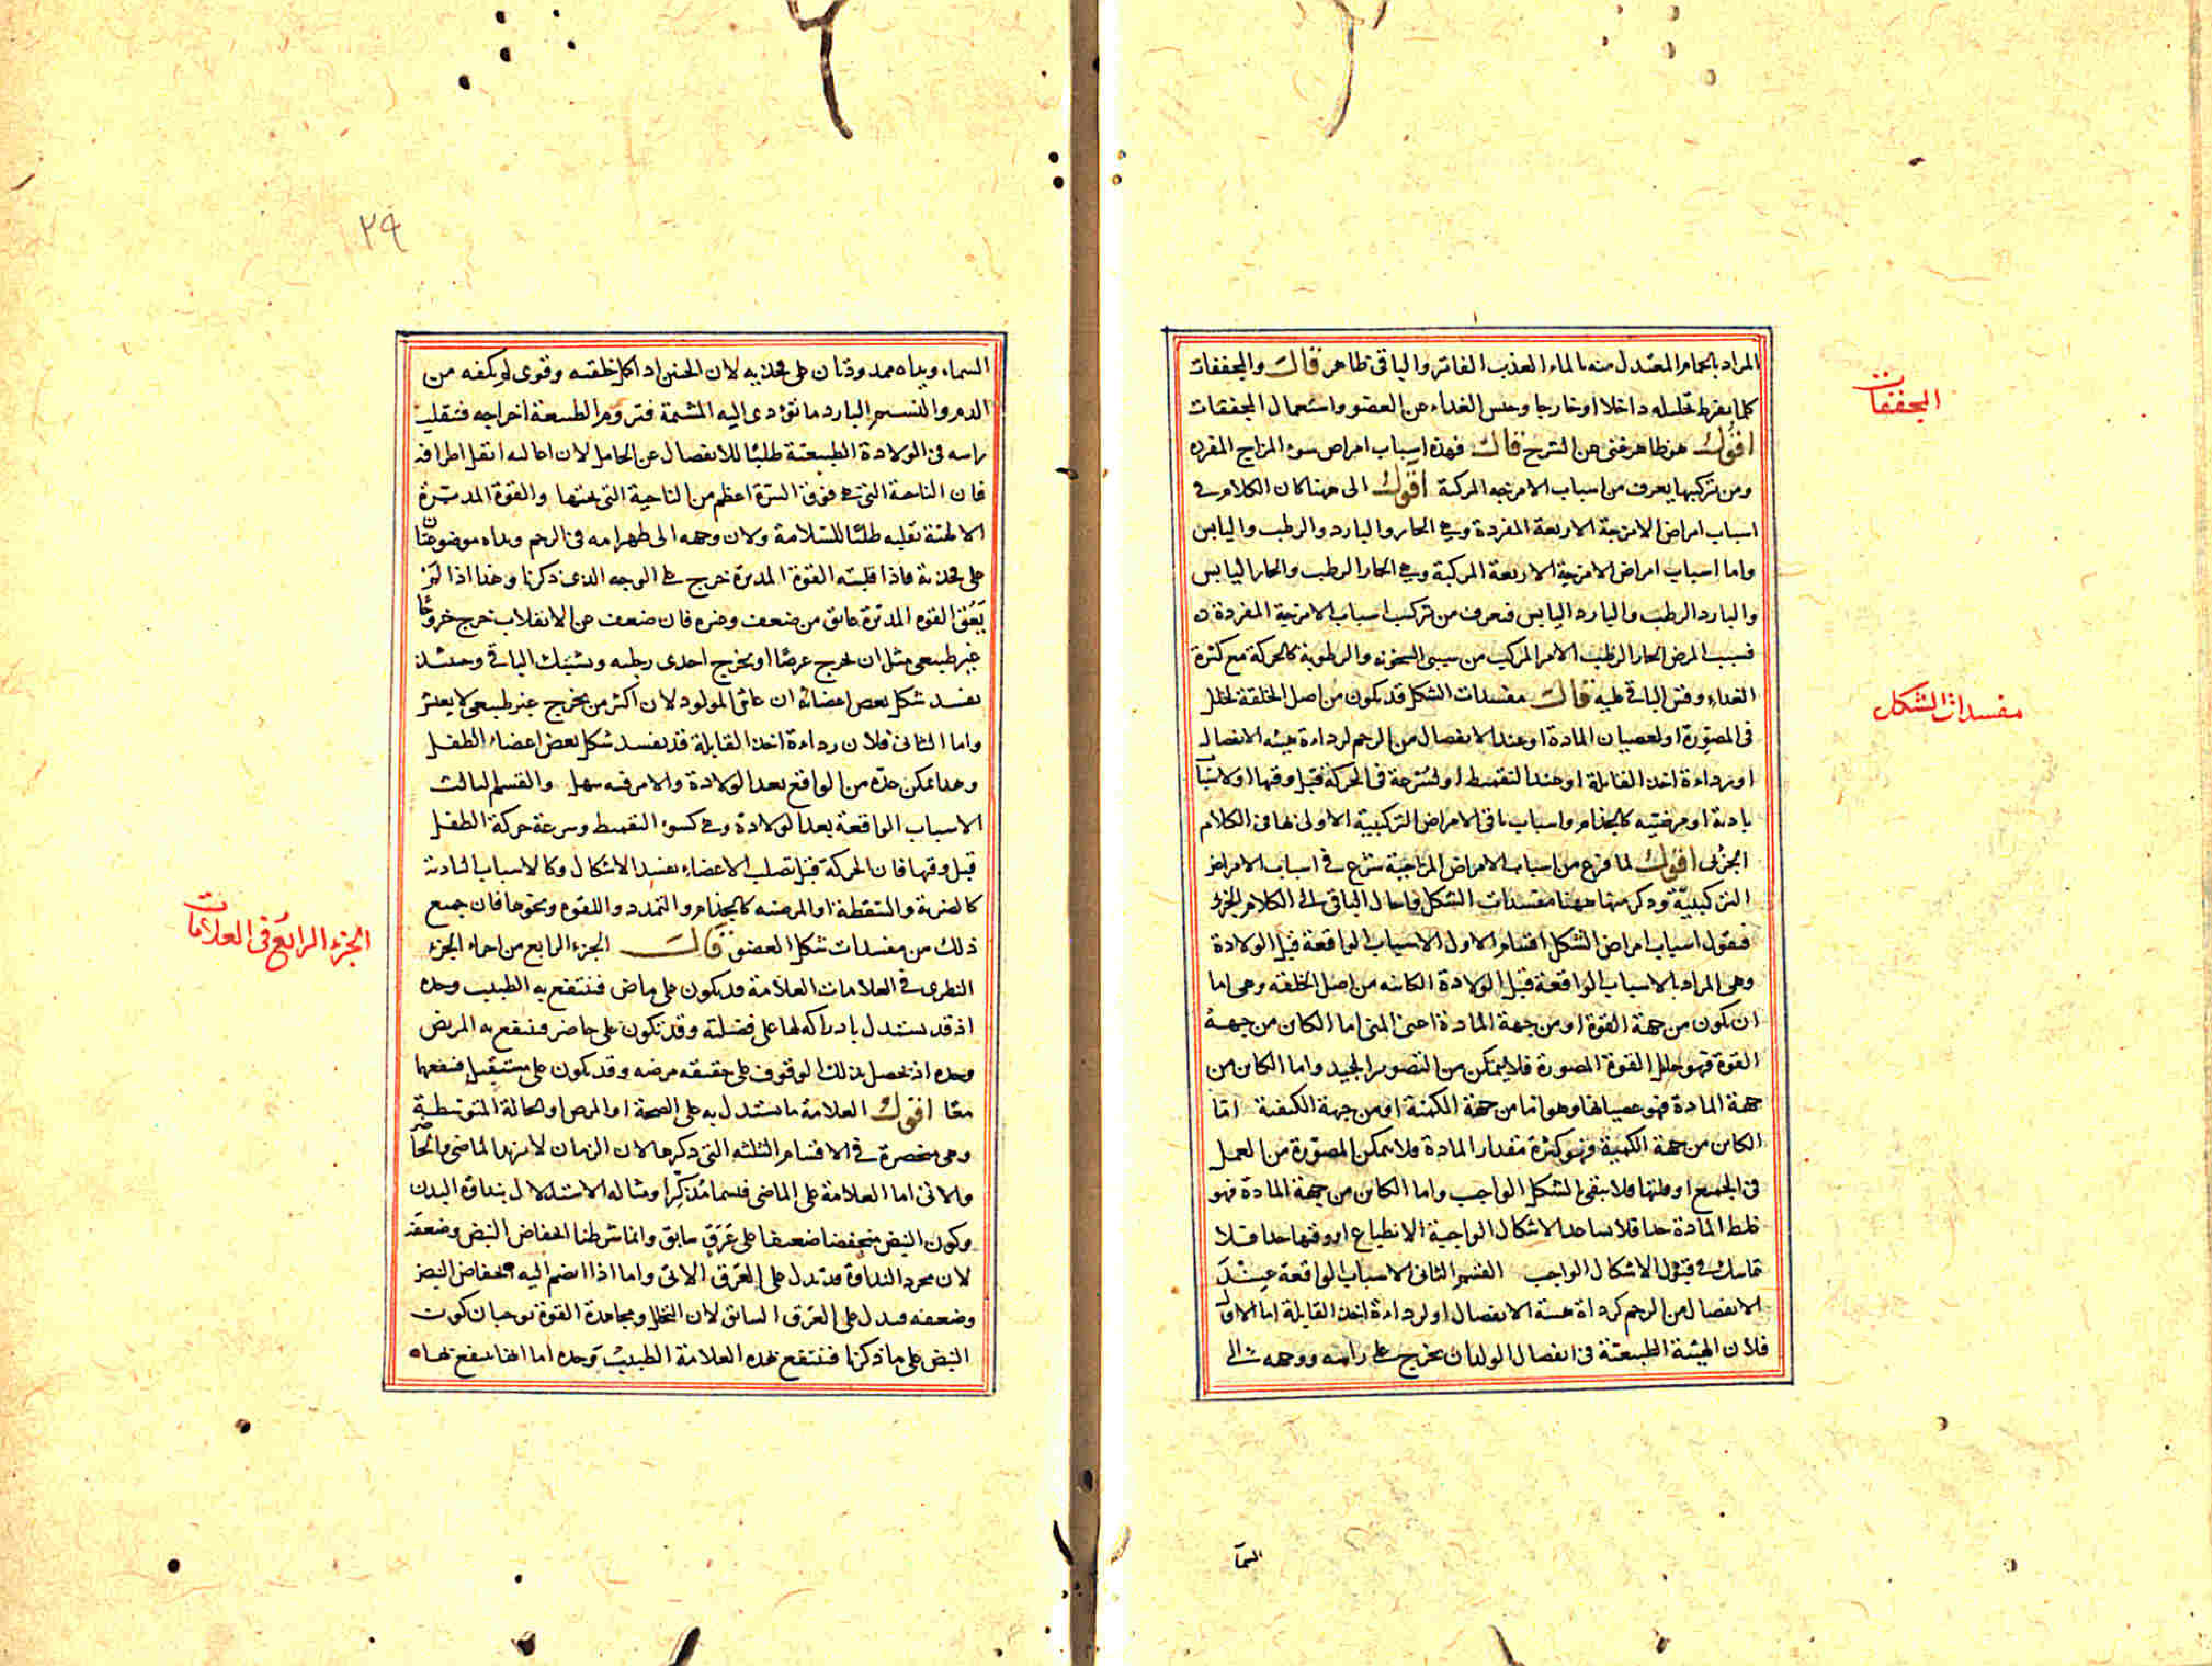 المراد بالحمام المعتدل منه بالماء العذب الفاتر والباقى ظاهر قال والمجففات
كلما يفرط تحليله داخلا او خارجا وحبس الغذاء عن العضو واستعمال المجففات
اقول هو ظاهر غنى عن الشرح قال فهذه اسباب امراض سوء المزاج المفرده
ومن تركيبها يعرف من اسباب الامزجه المركبة اقول الى ههنا كان الكلام فى
اسباب امراض الامزجة الاربعة المفردة وهى الحار والبارد والرطب واليابس
واما اسباب امراض الامزجة الاربعة المركبة وهى الحار الرطب والحار اليابس
والبارد الرطب والبارد اليابس فيعرف من تركيب اسباب الامزجة المفردة
فسبب المرض الحار الرطب الامر المركب من سببى السخونه والرطوبة كالحركة مع كثرة
الغداء وقس الباقى عليه قال مفسدات الشكل قد يكون من اصل الخلقة لخلل
فى المصورة او لعصيان المادة او عند الانفصال من الرحم لرداءة هيئه الانفصال
او رداءة اخذ القابلة او عند التقميط او لسرعة فى الحركة قبل وقتها او لاسباب
بادية او مرضيه كالجذام واسباب باقى الامراض التركيبية الاولى بها فى الكلام
الجزئى اقول لما فرغ من اسباب الامراض المزاجية شرع فى اسباب الامراض
التركيبية وذكر منها ههنا مفسدات الشكل واحال الباقى الى الكلام الجزئى
فنقول اسباب امراض الشكل اقسام الاول الاسباب الواقعة قبل الولادة
وهى المراد بالاسباب الواقعة قبل الولادة الكائنه من اصل الخلقه وهى اما
ان يكون من جهة القوة او من جهة المادة اعنى المنى اما الكائن من جهة
القوة فهو خلل القوة المصورة فلا يتمكن من التصوير الجيد واما الكائن من
جهة المادة فهو عصيانها وهو اما من جهة الكمية او من جهة الكيفية اما
الكائن من جهة الكمية فهو كثرة مقدار المادة فلا يمكن المصورة من العمل
فى الجميع او قلتها فلا يبقى الشكل الواجب واما الكائن من جهة المادة فهو
غلظ المادة جدا فلا يساعد الاشكال الواجبة الانطباع او رقتها جدا فلا
تماسك فى قبول الاشكال الواجب القسم الثانى الاسباب الواقعة حينئذ
الانفصال من الرحم كرداءة هيئة الانفصال او لرداءة اخذ القابلة اما الاول
فلان الهيئة الطبيعية فى انفصال الولد ان يخرج على راسه ووجهه الى
السما
المجففات
مفسدات الشكل
٢٩
السماء ويداه ممدودتان على فخذيه لان الجنين اذا كمل خلقته وقوى لم يكفه من
الدم والنسيم البارد ما تؤدى اليه المشيمة فتروم الطبيعة اخراجه فتقلب
راسه فى الولادة الطبيعية طلبا للانفصال عن الحامل لان اعاليه اثقل اطرافه
فان الناحية التى هى فوق السرة اعظم من الناحية التى تحتها والقوة المدبرة
الالهية تقلبه طلبا للسلامة ولان وجهه الى ظهر امه فى الرحم ويداه موضوعتان
على فخذيه فاذا قلبته القوة المدبرة خرج على الوجه الذى ذكرنا وهذا اذا لم
يعق القوه المدبرة عائق من ضعف وغيره فان ضعف عن الانقلاب خرج خروجا
غير طبيعى مثل ان يخرج عرضا او يخرج احدى رجليه ويشتبك الباقى وحينئذ
يفسد شكل بعض اعضائه ان عاش المولود لان اكثر من يخرج غير طبيعى لا يعيش
واما الثانى فلان رداءة اخذ القابلة قد يفسد شكل بعض اعضاء الطفل
وهذا يمكن عده من الواقع بعد الولادة والامر فيه سهل والقسم الثالث
الاسباب الواقعة بعد الولادة وهى كسوء التقميط وسرعة حركة الطفل
قبل وقتها فان الحركة قبل تصلب الاعضاء يفسد الاشكال وكالاسباب البادية
كالضربة والسقطة او المرضيه كالجذام والتمدد واللقوه ونحوها فان جميع
ذلك من مفسدات شكل العضو قال الجزء الرابع من اجزاء الجزء
النظرى فى العلامات العلامة قد يكون على ماض فينتفع به الطبيب وحده
اذ قد يستدل بادراكه لها على فضيلته وقد تكون على حاضر فينتفع به المريض
وحده اذ يحصل بذلك الوقوف على حقيقه مرضه وقد يكون على مستقبل فينفعهما
معا اقول العلامة ما يستدل به على الصحة او المرض او الحالة المتوسطة
وهى منحصرة فى الاقسام الثلثه التى ذكرها لان الزمان لا يزيد الماضى والحاضر
والاتى اما العلامة على الماضى فيسمى مذكرا ومثاله الاستدلال بنداوة البدن
وكون النبض منخفضا ضعيفا على عرق سابق وانما شرطنا انخفاض النبض وضعفه
لان مجرد النداوة قد تدل على العرق الاتى واما اذا انضم اليه انخفاض النبض
وضعفه فيدل على العرق السابق لان التخلل ومجاهدة القوة توجبان كون
النبض على ما ذكرنا فينتفع بهذه العلامة الطبيب وحده اما انها ينفع بها
الجزء الرابع فى العلامات